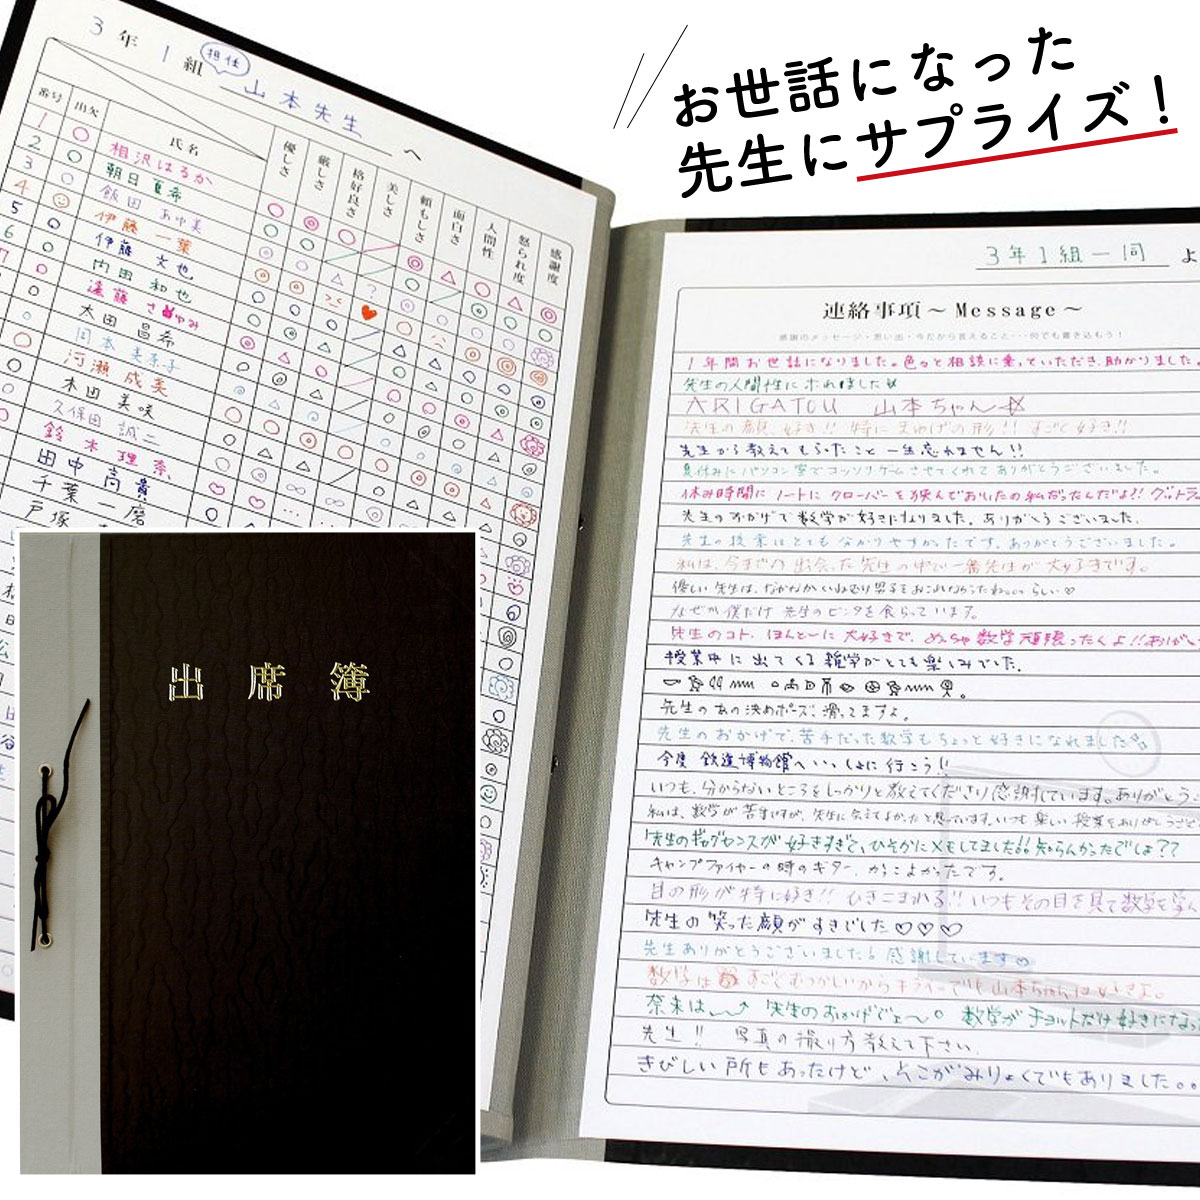 お世話になった
先生にサプライズ！
3年1組 担任 山本先生 へ
番号 出欠 氏名 優しさ 厳しさ 格好良さ 美しさ 頼もしさ 面白さ 人間性 怒られ度 感謝度
1 相沢はるか
2 朝日夏希
3 飯田あゆ美
4 伊藤一葉
5 伊藤文也
6 内田和也
7 遠藤さゆみ
太田昌希
岡本美奈子
河瀬成美
本田美咲
久保田誠二
鈴木理奈
田中高貴
千葉一磨
戸塚
出席簿
3年1組一同 よ
連絡事項～Message～
感謝のメッセージ・思い出・今だから言えること・・・何でも書き込もう！
1年間お世話になりました。色々と相談に乗っていただき、助かりました
先生の人間性にホれました☆
ARIGATOU 山本ちゃん☆
先生の顔、好き!! 特にまゆげの形!! すごく好き!!
先生から教えてもらったこと一生忘れません!!
夏休みにパソコン室でコッソリゲームさせてくれてありがとうございました。
休み時間にノートにクローバーを挟んでおいたの私だったんだよ!!
先生のおかげで数学が好きになりました。ありがとうございました。
先生の授業はとても分かりやすかったです。ありがとうございました。
私は、今までの出会った先生の中で一番先生が大好きです。
優しい先生は、なかなかいねむり男子をおこれなかったね。。。らしい♡
なぜか僕だけ先生のビンタを食らっています。
先生のコト、ほんとーに大好きで、めっちゃ数学頑張ったよ!!
授業中に出てくる雑学がとても楽しみでした。
先生のあの決めポーズ、滑ってますよ。
先生のおかげで、苦手だった数学もちょっと好きになれました
今度鉄道博物館へいっしょに行こう!!
いつも、分からないところをしっかりと教えてくださり感謝しています。ありがとう
私は、数学が苦手ですが、先生に会えてよかったと思っています。いつも楽しい授業をありがとうござ
先生のギャグセンスが好きすぎて、ひそかにメモしてました!! 知らんかったでしょ??
キャンプファイヤーの時のギター、かっこよかったです。
目の形が特に好き!! ひきこまれる!! いつもその目を見て数学を学ん
先生の笑った顔がすきでした♡♡♡
先生ありがとうございました 感謝しています
数学はすごくむつかしいからキライーでも山本ちゃんは好きよ。
奈来は 先生のおかげでェ〜。数学がチョットだけ好きにな
先生!! 写真の撮り方教えて下さい
きびしい所もあったけど、そこがみりょくでもありました。。